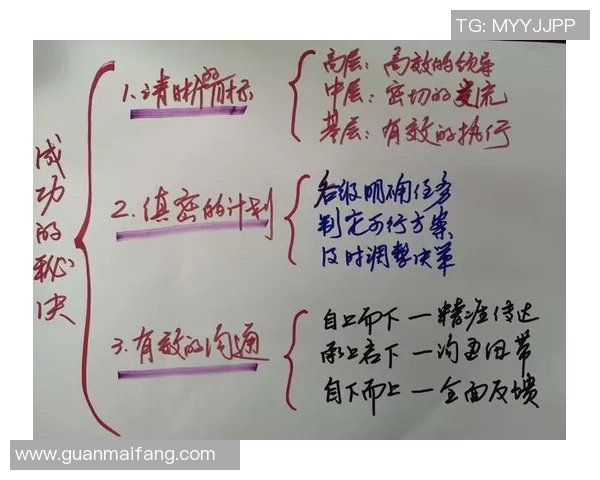 TG: MYYJJPP
成功的秘决
1、清晰的目标
高层：高效的领导
中层：密切的交流
基层：有效的执行
2、缜密的计划
各级明确任务
判定可行方案
及时调整决策
3、有效的沟通
自上而下—精准传达
承上启下—沟通纽带
自下而上—全面反馈
www.guanmaifang.com